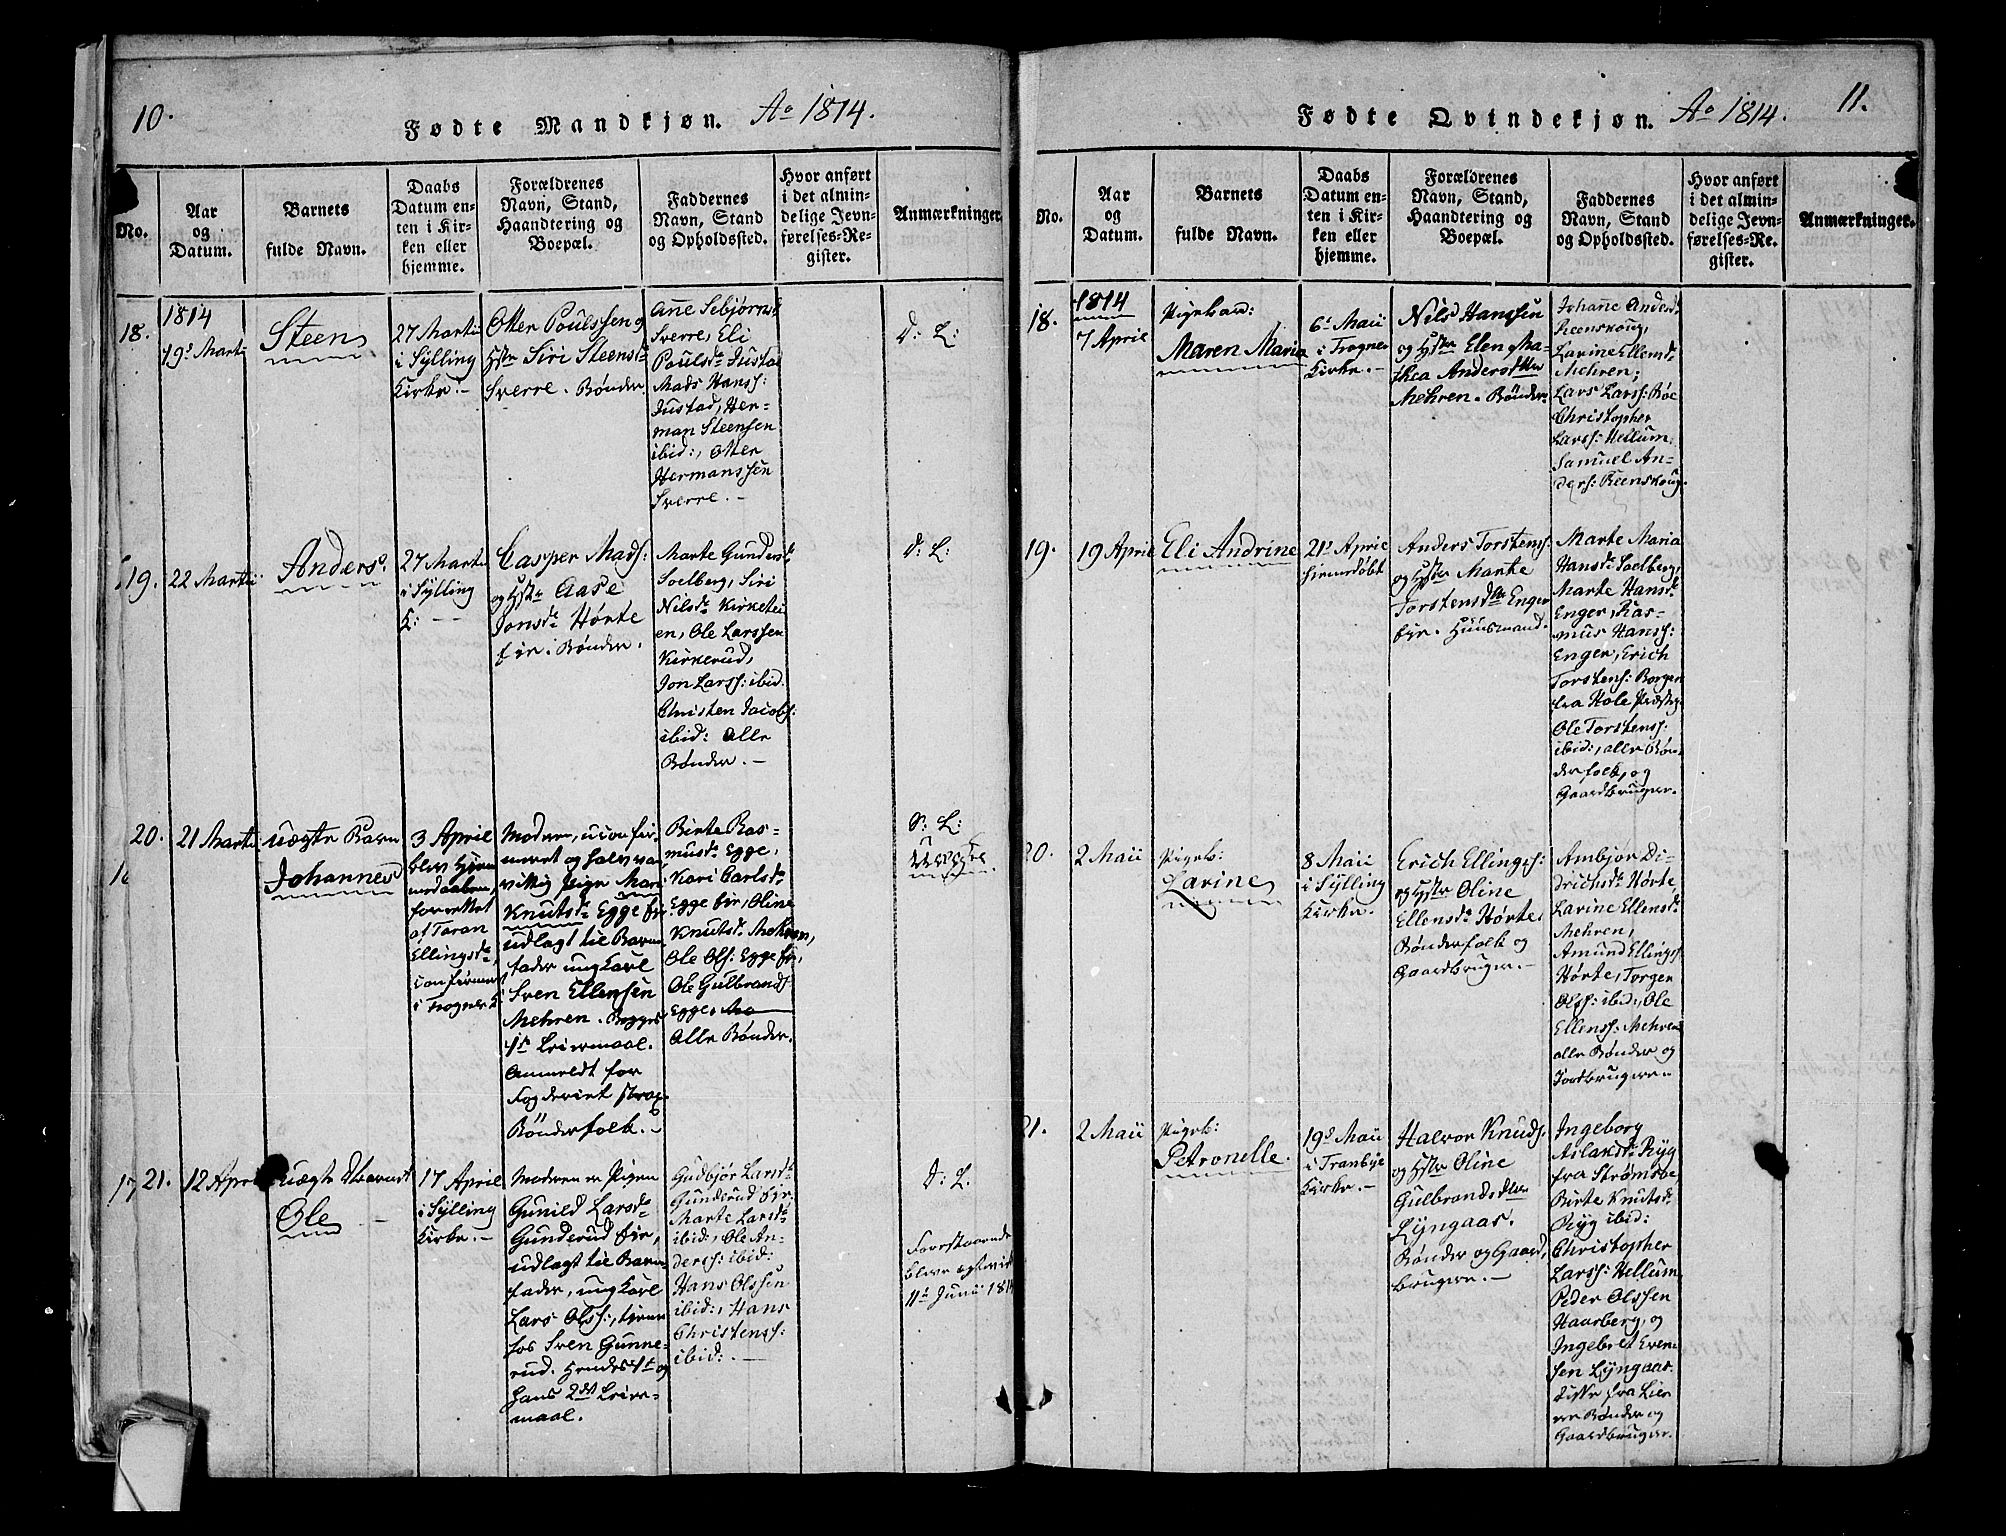 10.
Fødte Mandkjøn. Ao 1814.
No.
Aar
og
Datum.
Barnets
fulde Navn.
Daabs
Datum en-
ten i Kir-
ken eller
hjemme.
Forældrenes
Navn, Stand,
Haandtering og
Boepæl.
Faddernes
Navn, Stand
og Opholdssted.
Hvor anført
i det almin-
delige Jevn-
førelses-Re-
gister.
Anmærkninger.
18.
1814
19s Martii
Steen
27 Martii
i Sylling
Kirke.-
Otter Poulssen og
Hstr Siri Steensd.
Sverre. Bønder
Anne Sebjørns
Sverre, Eli
Poulsdr Justad
Mads Hanss:
Justad, Her-
man Steensen
ibid:, Otter
Hermanssen
Sverre.-
d: L:
19.
22 Martii
Anders.
27 Martii
i Sylling
K:
Casper Mads:
og Hstr Aase
Jonsdr Hørte
eir. Bønder.
Marte Gunders
Soelberg, Siri
Nilsdr Kirketei
en, Ole Larssen
Kirkerud,
Jon Larss: ibid:
Christen Jacobs:
ibid: Alle
Bønder.-
d: L:
20.
21 Martii
uægte Barn
Johannes
3 April
blev hjem
medaaben,
forrettet
af Taran
Ellingsdr,
confirmeret
i Frogner K
Moderen, uconfir-
meret og halv van
vittig Pige Mari
Knutsdr Egge eir
udlagt til Barne
fader ungkarl
Sven Ellensen
Mehren. Begges
1ste Leiermaal.
Anmeldt for
Fogderiet strax.
Bønderfolk.-
Birte Ras-
musdr Egge,
Kari Carlsdr
Egge eir, Oline
Knutsdr Mehren,
Ole Ols: Egge eir,
Ole Gulbrands:
Egge,
Alle Bønder.
21.
12 April
uægte
Ole
17 April
i Sylling
Kirke.-
Moderen er Pigen
Gunild Larsdr
Gunderud eir,
udlagt til Barne
fader, ungkarl
Lars Olss:, tjener
hos Sven Gunne-
rud. Hendes 1ste og
hans 2det Leier-
maal.
Gudbjør Larsdr
Gunderud eir
Marte Larsdr
ibid:, Ole An-
derss: ibid:
Hans Olssen
ibid:, Hans
Christenss:
ibid:.-
d: L.
Forestaaende
bleve egteviet
11te Junii 1814
11.
Fødte Qvindekjøn. Ao 1814.
No.
Aar
og
Datum.
Barnets
fulde Navn.
Daabs
Datum en-
ten i Kir-
ken eller
hjemme.
Forældrenes
Navn, Stand,
Haandtering og
Boepæl.
Faddernes
Navn, Stand
og Opholdssted.
Hvor anført
i det almin-
delige Jevn-
førelses-Re-
gister.
Anmærkninger.
18.
1814
7 April
Pigebarn:
Maren Maria
6te Maii
i Frogner
Kirke.-
Nils Hanssen
og Hstr Elen Ma-
thea Andersdtter
Mehren. Bønder.
Johanne Anders
Reenskoug,
Larine Ellensd:
Mehren;
Lars Larss: Bøe
Christopher
Larss: Hellum,
Samuel An-
ders: Reenskoug.
19.
19 April
Eli Andrine
21s April
hjemdøbt
Anders Torstens:
og Hstr Marte
Torstensdtr Enger
eir. Huusmand.
Marte Maria
Hansdr Soelberg,
Marte Hansdr
Enger, Ras-
mus Hanss:
Enger, Erich
Torstens: Borgen
fra Hole Præsteg.
Ole Torstens:
ibid:, alle Bøn-
derfolk, og
Gaardbruger.
20.
2 Maii
Pigeb:
Larine
8 Maii
i Sylling
Kirke.
Erich Ellings:
og Hstr Oline
Ellensdr Hørte,
Bønderfolk og
Gaardbruger.-
Ambjør Di-
drichsdr Hørte,
Larine Ellensd:
Mehren,
Amund Ellings:
Hørte, Torger
Olss: ibid:, Ole
Ellenss: Mehren
alle Bønder og
Jordbrugere.-
21.
2 Maii
Pigeb:
Petronelle.
19s Maii
i Tranbye
Kirke.-
Halvor Knuds:
og Hstr Oline
Gulbrandsdtter
Lyngaas.
Bønder og Gaard
brugere.-
Ingeborg
Asland: Ryg
fra Strømsøe
Birte Knutsdr
Ryg ibid:
Christopher
Larss: Hellum
Peder Olssen
Haarberg, og
Ingebret Even-
sen Lyngaas.
Disse fra Lier
ere Bønder og
Gaardbruger.